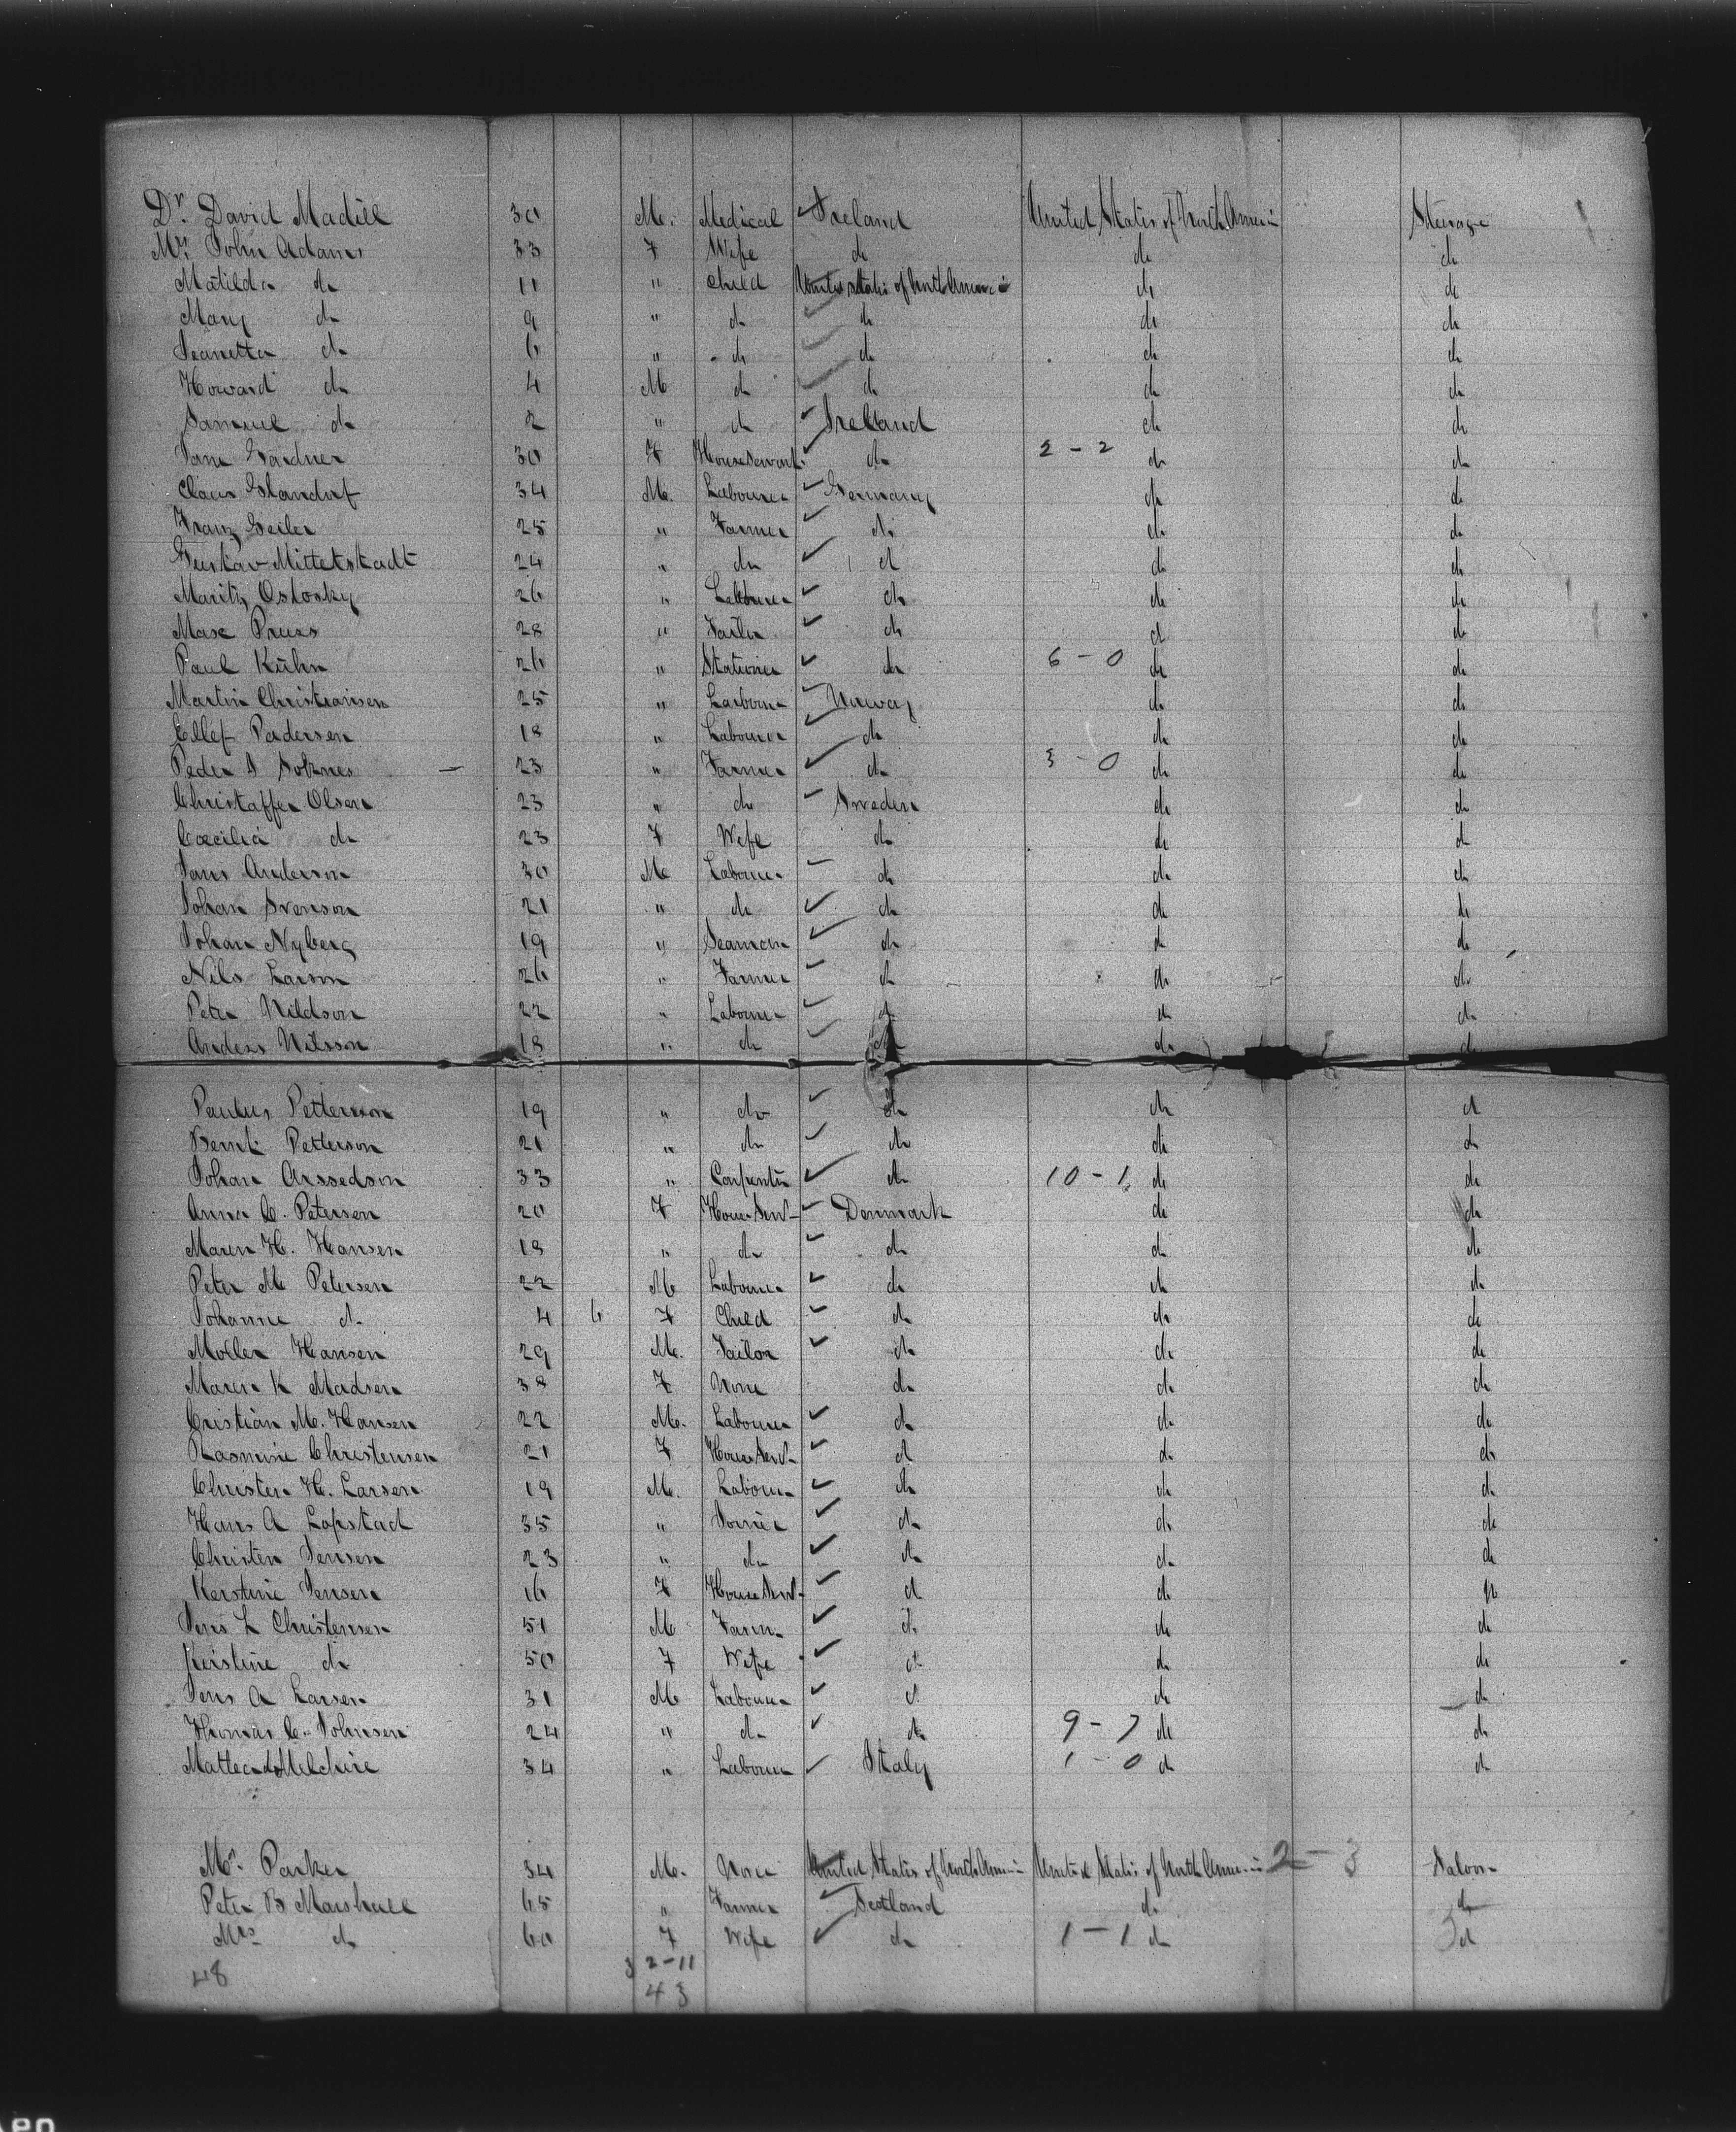 Dr. David Madill 30 M. Medical Ireland United States of North Ameri Steerage
Mrs John Adams 33 F Wife do do do
Matilda do 11 " Child United States of North America do do
Mary do 9 " do do do do
Jeanetta do 6 " do do do do
Howard do 4 M do do do do
Samuel do 2 " do Ireland do do
Jane Gardner 30 F House Servant do 2 - 2 do do
Claus Glandorf 34 M. Labourer Germany do do
Franz Geiler 25 " Farmer do do do
Gustav Mittelstadt 24 " do do do do
Moritz Ostosky 26 " Labourer do do do
Max Pruss 28 " Tailor do do do
Paul Kühn 26 " Stationer do 6 - 0 do do
Martin Christiansen 25 " Labourer Norway do do
Ellef Pedersen 18 " Labourer do do do
Peder S Solnes 23 " Farmer do 3 - 0 do do
Christaffer Olsen 23 " do Sweden do do
Cacilia do 23 F Wife do do do
Jans Anderson 30 M Labourer do do do
Johan Svenson 21 " do do do do
Johan Nyberg 19 " Seaman do do do
Nils Larson 26 " Farmer do do do
Peter Nildson 22 " Labourer do do do
Anders Nilsson 18 " do do do do
Paulus Petterson 19 " do do do do
Bernt Petterson 21 " do do do do
Johan Arssedson 33 " Carpenter do 10 - 1 do do
Anna C. Petersen 20 F House Servt Denmark do do
Maren H. Hansen 18 " do do do do
Peter M Petersen 22 M Labourer do do do
Johanne do 4 6 F Child do do do
Moller Hansen 29 M. Tailor do do do
Maren K Madsen 38 F None do do do
Cristian M. Hansen 22 M. Labourer do do do
Rasmine Christensen 21 F House Servt do do do
Christen H. Larsen 19 M. Labourer do do do
Hans A Lopstad 35 " do do do
Christen Jensen 23 " do do do do
Kerstine Jensen 16 F House Servt do do do
Jens L Christensen 51 M Farmer do do do
Kirstine do 50 F Wife do do do
Jens A Larsen 31 M Labourer do do do
Thomas C. Johnsen 24 " do do 9 - 7 do do
Matteo Melchire 34 " Labourer Italy 1 - 0 do do
Mr. Parker 34 M. None United States of North Ameri United States of North Ameri 2 - 3 Saloon
Peter B Marshall 65 " Farmer Scotland do do
Mrs do 60 F Wife do 1 - 1 do do
3 2-11
48 43